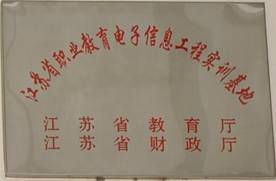 江苏省职业教育电子信息工程实训基地
江苏省教育厅
江苏省财政厅